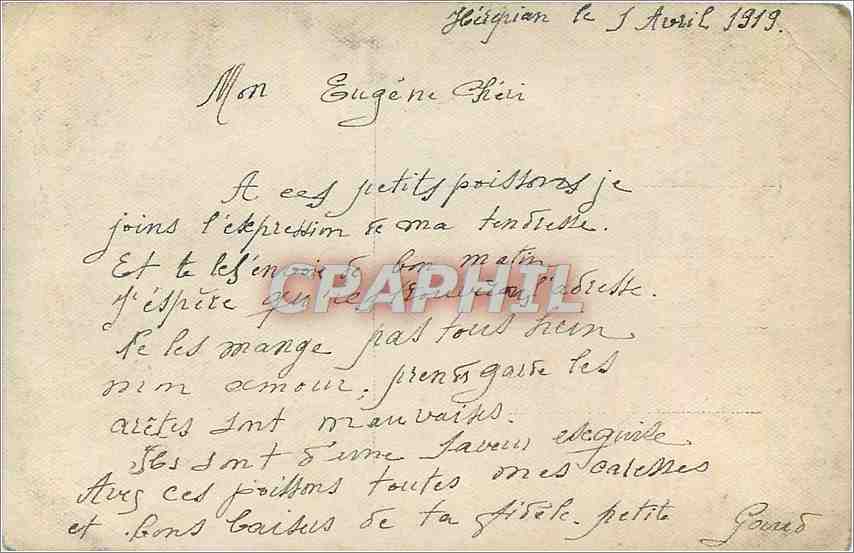 Hérépian le 1 Avril 1919.
Mon Eugène Chéri
A ces petits poissons je
joins l'expression de ma tendresse.
Et te les envoie de bon matin
J'espère qu'ils trouverons l'adresse.
Ne les mange pas tous hein
mon amour, prends garde les
arêtes sont mauvaises.
Ils sont d'une saveur exquise
Avec ces poissons toutes mes caresses
et bons baisers de ta fidèle petite
CPAPHIL